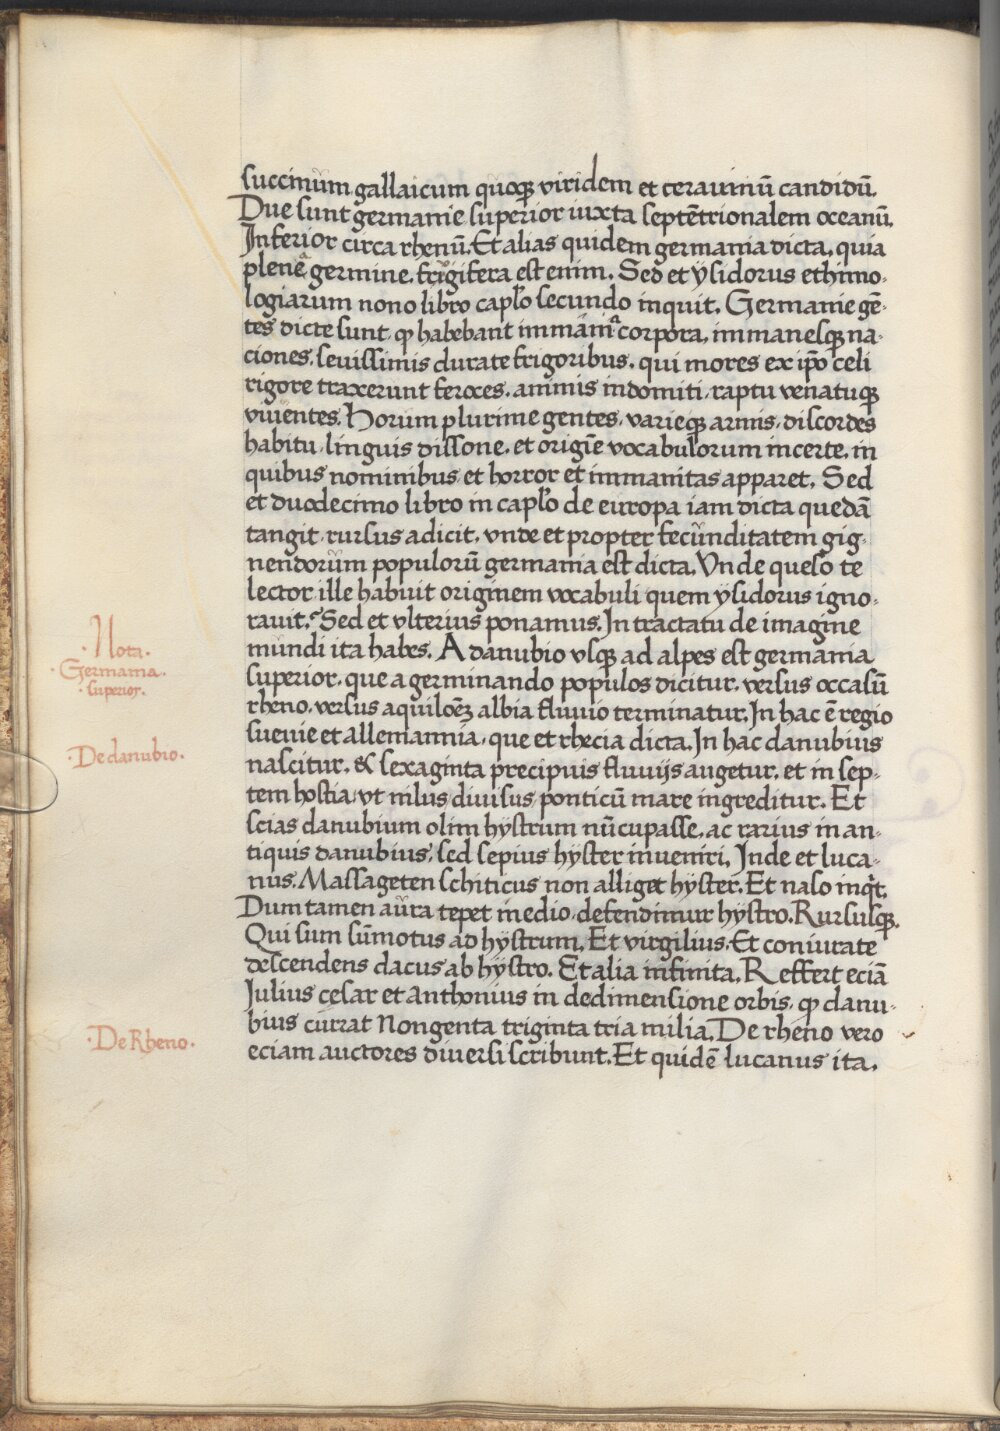 succinum gallaicum quoqꝫ viridem et cerauniū candidū.
Due sunt germanie superior iuxta septētrionalem oceanū.
Inferior circa rhenū. Et alias quidem germania dicta, quia
plene germine. frigifera est enim. Sed et ysidorus ethimo-
logiarum nono libro cap̄lo secundo inquit. Germanie gē-
tes dicte sunt, ꝙ habebant immania corpora, immanesqꝫ na-
ciones, seuissimis durate frigoribus. qui mores ex ip̄o celi
rigore traxerunt feroces. animis indomiti, raptu venatuqꝫ
viuentes. Horum plurime gentes, varieqꝫ armis, discordes
habitu, linguis dissone. et origīe vocabulorum incerte. in
quibus nominibus et horror et immanitas apparet. Sed
et duodecimo libro in cap̄lo de europa iam dicta quedā
tangit rursus adicit, vnde et propter fecunditatem gig-
nendorum populorū germania est dicta. Vnde queso te
lector, ille habuit originem vocabuli quem ysidorus igno-
rauit. Sed et vlterius ponamus. In tractatu de imagine
mundi ita habes. A danubio vsqꝫ ad alpes est germania
·Nota·
·Germania·
·superior·
superior. que a germinando populos dicitur. versus occasū
rheno, versus aquilonē albia fluuio terminatur. In hac ē regio
sueuie et allemannia, que et rhecia dicta. In hac danubius
·De danubio·
nascitur, & sexaginta precipuis fluuijs augetur. et in sep-
tem hostia, vt nilus diuisus, ponticū mare ingreditur. Et
scias danubium olim hystrum nūcupasse, ac rarius in an-
tiquis danubius, sed sepius hyster inueniri. Inde et luca-
nus. Massageten schiticus non alliget hyster. Et naso inq̇t.
Dum tamen aura tepet medio defendimur hystro. Rursusqꝫ.
Qui sum sūmotus ad hystrum. Et virgilius. Et coniurate
descendens dacus ab hystro. Et alia infinita. Reffert eciā
Iulius cesar et Anthonius in dedimensione orbis. ꝙ danu-
bius currat Nongenta triginta tria milia. De rheno vero
·De Rheno·
eciam auctores diuersi scribunt. Et quidē lucanus ita.